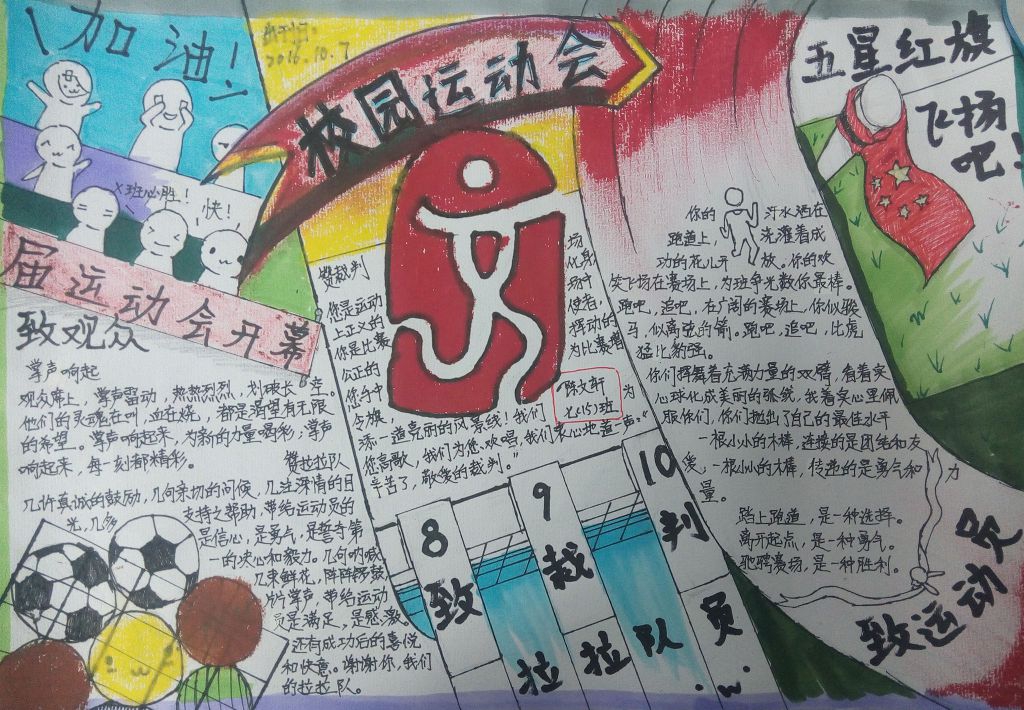 加油!
创刊日:
2016.10.7
校园运动会
五星红旗
飞扬
吧!
X班必胜!
快!
届运动会开幕
致观众
掌声响起
观众席上，掌声雷动，热热烈烈，划破长空。
他们的灵魂在叫，血在烧，都是渴望有无限
的希望。掌声响起来，为新的力量喝彩；掌声
响起来，每一刻都精彩。
赞拉拉队
几许真诚的鼓励，几向亲切的问候，几注深情的目
光，几多
支持之帮助，带给运动员的
是信心，是勇气，是誓夺第
一的决心和毅力。几向呐喊，
几束鲜花，阵阵锣鼓，
片片掌声，带给运动
员是满足，是感激。
还有成功后的喜悦
和快意。谢谢你，我们
的拉拉队。
赞裁判
你是运动场
上正义的化身
你是比赛场中
公正的使者，
您手中挥动的
令旗，为比赛增
添一道亮丽的风景线！我们为
您高歌，我们为您欢唱，我们衷心地道一声："
辛苦了，敬爱的裁判。"
陈文轩
七(15)班
8
9
10
致裁判
拉拉队员
你的汗水洒在
跑道上，浇灌着成
功的花儿开放。你的欢
笑飞扬在赛场上，为班争光数你最棒。
跑吧，追吧，在广阔的赛场上，你似骏
马，似离弦的箭。跑吧，追吧，比虎
猛比豹强。
你们挥舞着充满力量的双臂，看着实
心球化成美丽的弧线，我着实心里佩
服你们，你们抛出了自己的最佳水平
一根小小的木棒，连接的是团结和友
爱，一根小小的木棒，传递的是勇气和力
量。
踏上跑道，是一种选择。
离开起点，是一种勇气。
驰骋赛场，是一种胜利。
致运动员